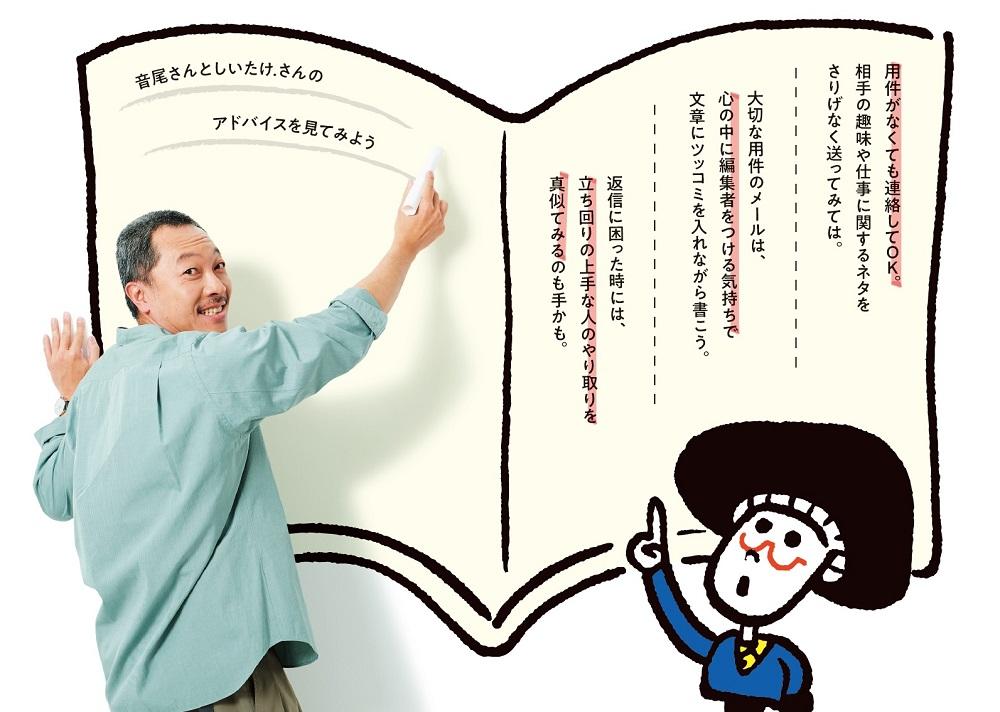 音尾さんとしいたけ.さんの
アドバイスを見てみよう
用件がなくても連絡してOK。
相手の趣味や仕事に関するネタを
さりげなく送ってみては。
大切な用件のメールは、
心の中に編集者をつける気持ちで
文章にツッコミを入れながら書こう。
返信に困った時には、
立ち回りの上手な人のやり取りを
真似てみるのも手かも。